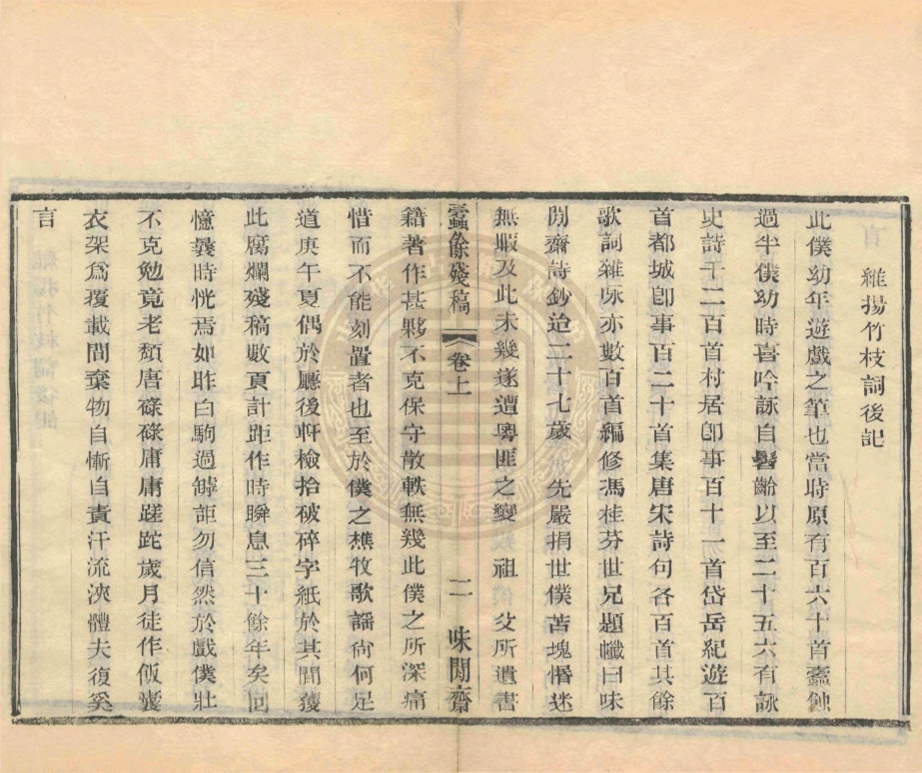 維揚竹枝詞後記
此僕幼年遊戲之筆也當時原有百六十首蠹蝕
過半僕幼時喜吟詠自髫齡以至二十五六有詠
史詩千二百首村居卽事百十一首岱岳紀遊百
首都城卽事百二十首集唐宋詩句各百首其餘
歌詞雜詠亦數百首編修馮桂芬世兄題幟曰味
閒齋詩鈔迨二十七歲先嚴捐世僕苫塊惛迷
無暇及此未幾遂遭粵匪之變祖 父所遺書
蠹餘殘稿 卷上 二 味閒齋
籍著作甚夥不克保守散軼無幾此僕之所深痛
惜而不能刻置者也至於僕之樵牧歌謠尙何足
道庚午夏偶於廳後軒檢拾破碎字紙於其間獲
此腐爛殘稿數頁計距作時瞬息三十餘年矣回
憶曩時恍焉如昨白駒過罅詎勿信然於戲僕壯
不克勉竟老頽唐碌碌庸庸蹉跎歲月徒作飯囊
衣架爲覆載間棄物自慚自責汗流浹體夫復奚
言